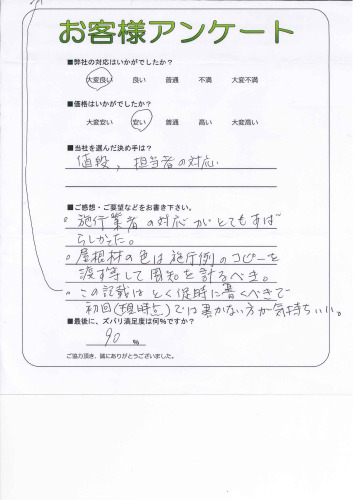 お客様アンケート
■弊社の対応はいかがでしたか？
大変良い 良い 普通 不満 大変不満
■価格はいかがでしたか？
大変安い 安い 普通 高い 大変高い
■当社を選んだ決め手は？
値段、担当者の対応
■ご感想・ご要望などをお書き下さい。
。施行業者の対応がとてもすば
らしかった。
。屋根材の色は施行例のコピーを
渡す等して周知を計るべき。
。この記載はとく促時に書くべきで
初回(現時点)では書かない方が気持ちいい。
■最後に、ズバリ満足度は何%ですか？
90 %
ご協力頂き、誠にありがとうございました。